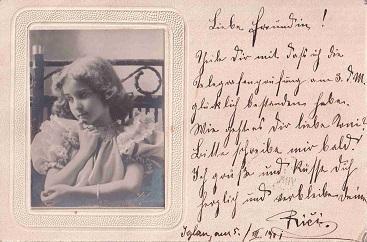 Liebe Freundin!
Teile Dir mit daß ich die
Telegrafenprüfung am 3. d. M.
glücklich bestanden habe.
Wie geht es Dir liebe Toni?
Bitte schreibe mir bald!
Ich grüße und Küsse Dich
herzlich und verbleibe Deine
Rici.
Iglau, am 5./